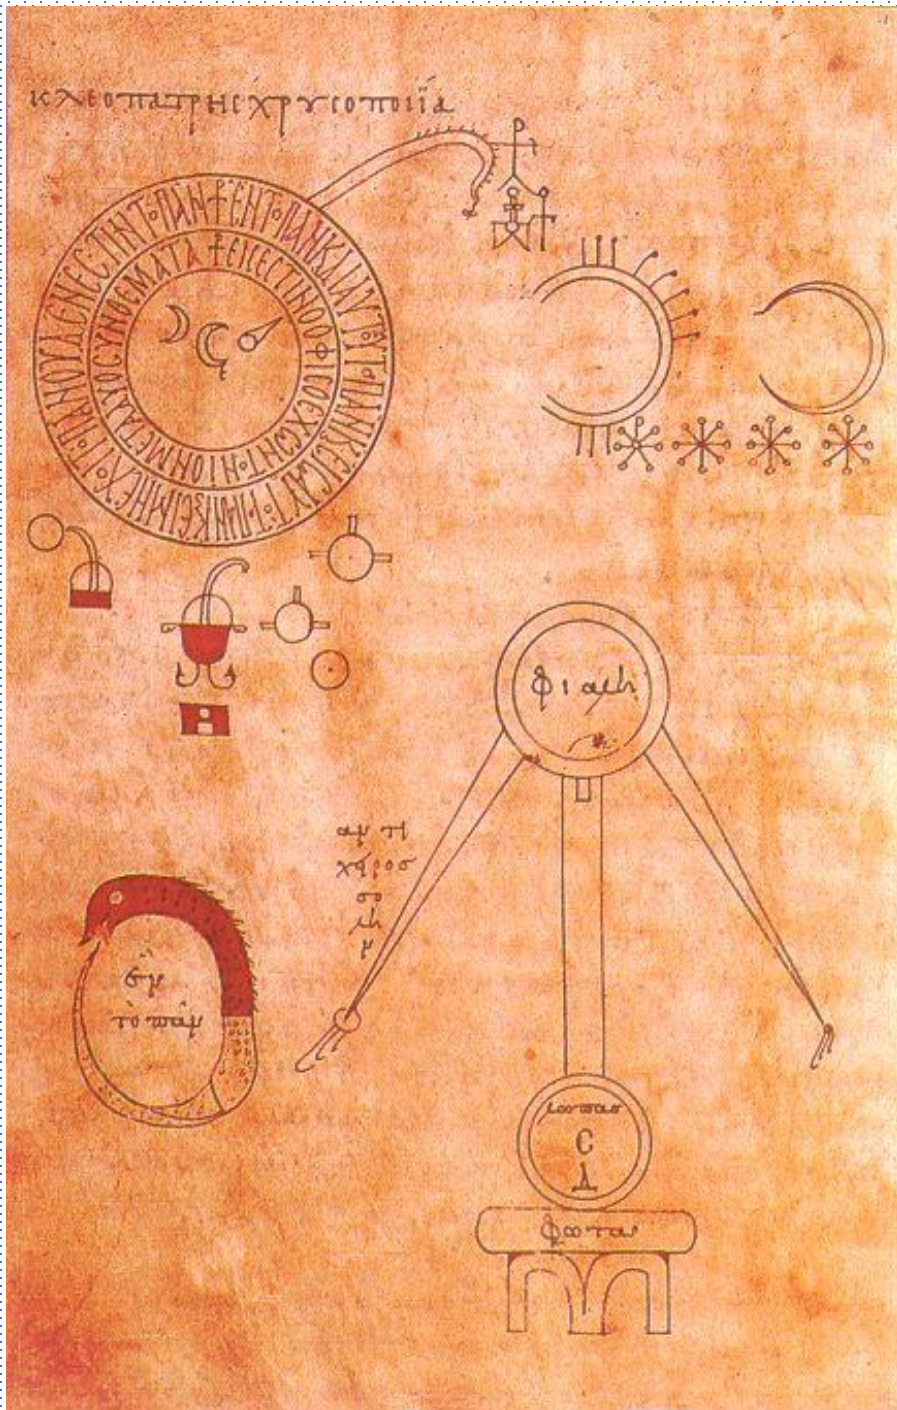 κλεοπατρης χρυσοποιΐα
ΕΝ ΤΟ ΠΑΝ ΚΑΙ ΔΙ ΑΥΤΟΥ ΤΟ ΠΑΝ Κ ΕΙC ΑΥΤΟ ΤΟ ΠΑΝ Κ ΕΙ ΜΗ ΕΧΟΙ ΤΟ ΠΑΝ ΟΥΔΕΝ ΕCΤΙΝ ΤΟ ΠΑΝ
ΕΙC ΕCΤΙΝ Ο ΟΦΙC Ο ΕΧΩΝ ΤΟΝ ΙΟΝ ΜΕΤΑ ΔΥΟ CΥΝΘΕΜΑΤΑ
φιάλη
αν τι
χειρος
σω
λη
ν
ἓν
τὸ πᾶν
λωπας
φωτα